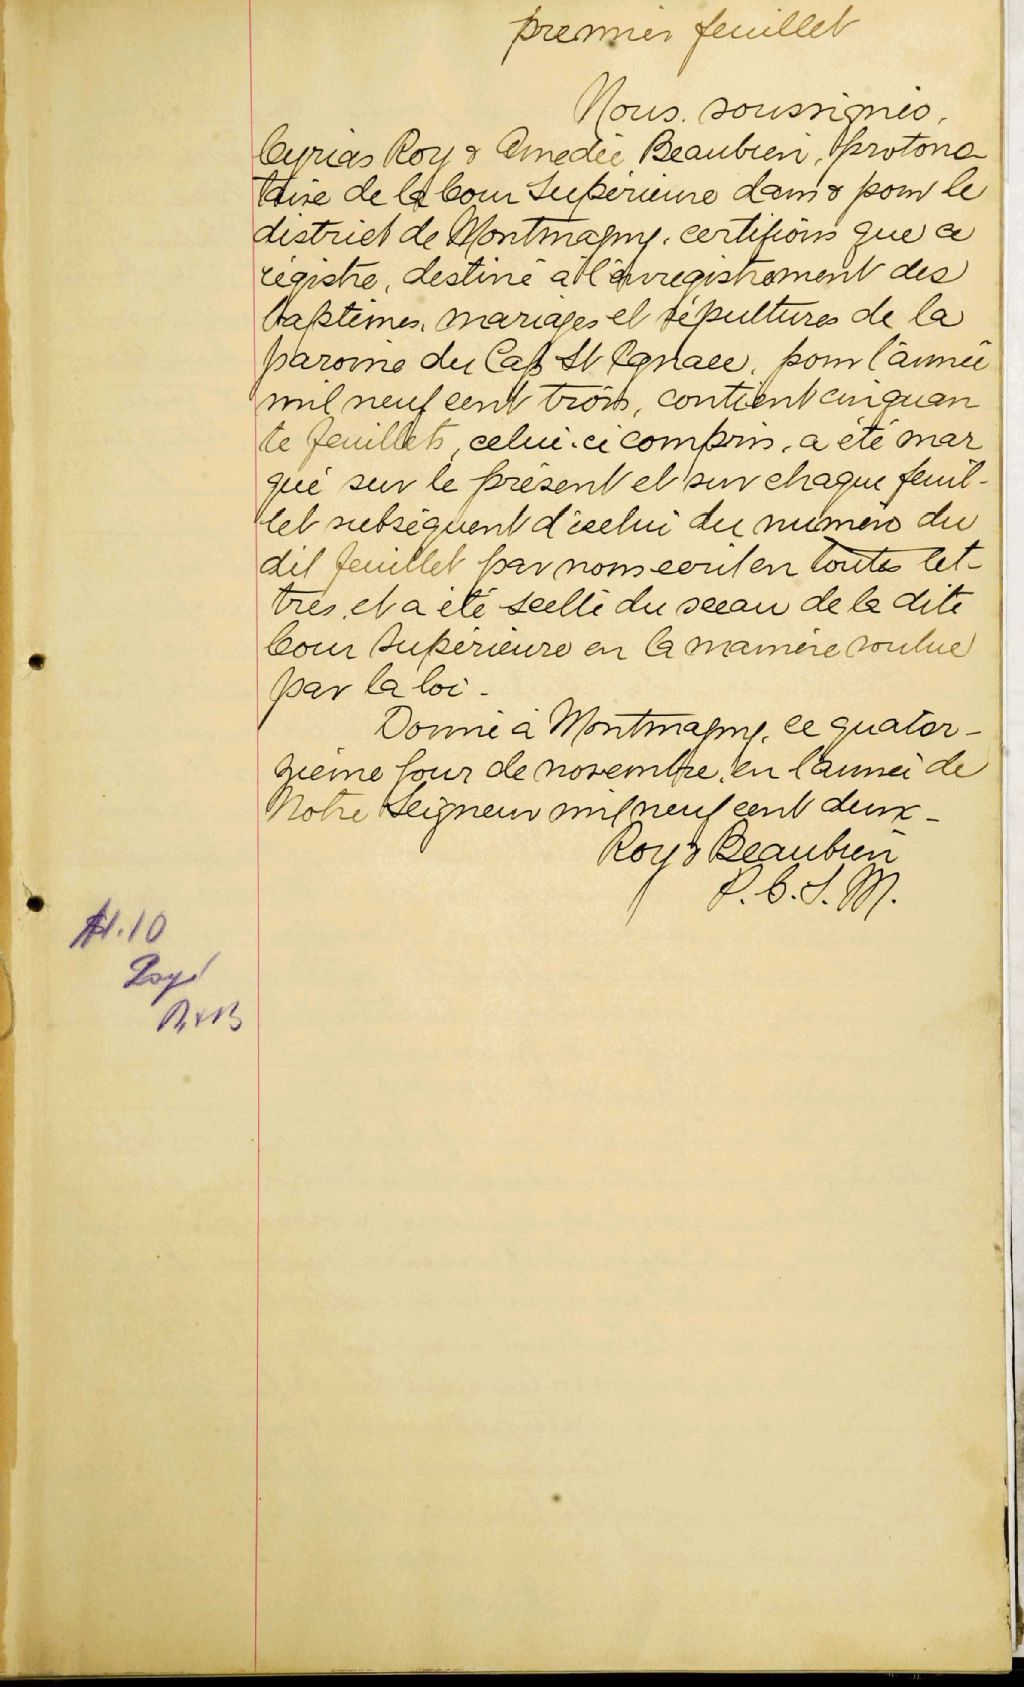 premier feuillet
Nous, soussignés,
Cyrias Roy & Amedée Beaubien, protono-
taire de la Cour Supérieure dans & pour le
district de Montmagny, certifions que ce
régistre, destiné à l'enregistrement des
baptêmes, mariages et sépultures de la
paroisse du Cap St Ignace, pour l'année
mil neuf cent trois, contient cinquan
te feuillets, celui-ci compris, a été mar
qué sur le présent et sur chaque feuil-
let subséquent d'icelui du numéro du
dit feuillet par nous ecrit en toutes let-
tres, et a été scellé du sceau de la dite
Cour Supérieure en la manière voulue
par la loi -
Donné à Montmagny, ce quator-
zième jour de novembre, en l'année de
Notre Seigneur mil neuf cent deux -
Roy & Beaubien
P. C. S. M.
$1.10
Payé
R & B